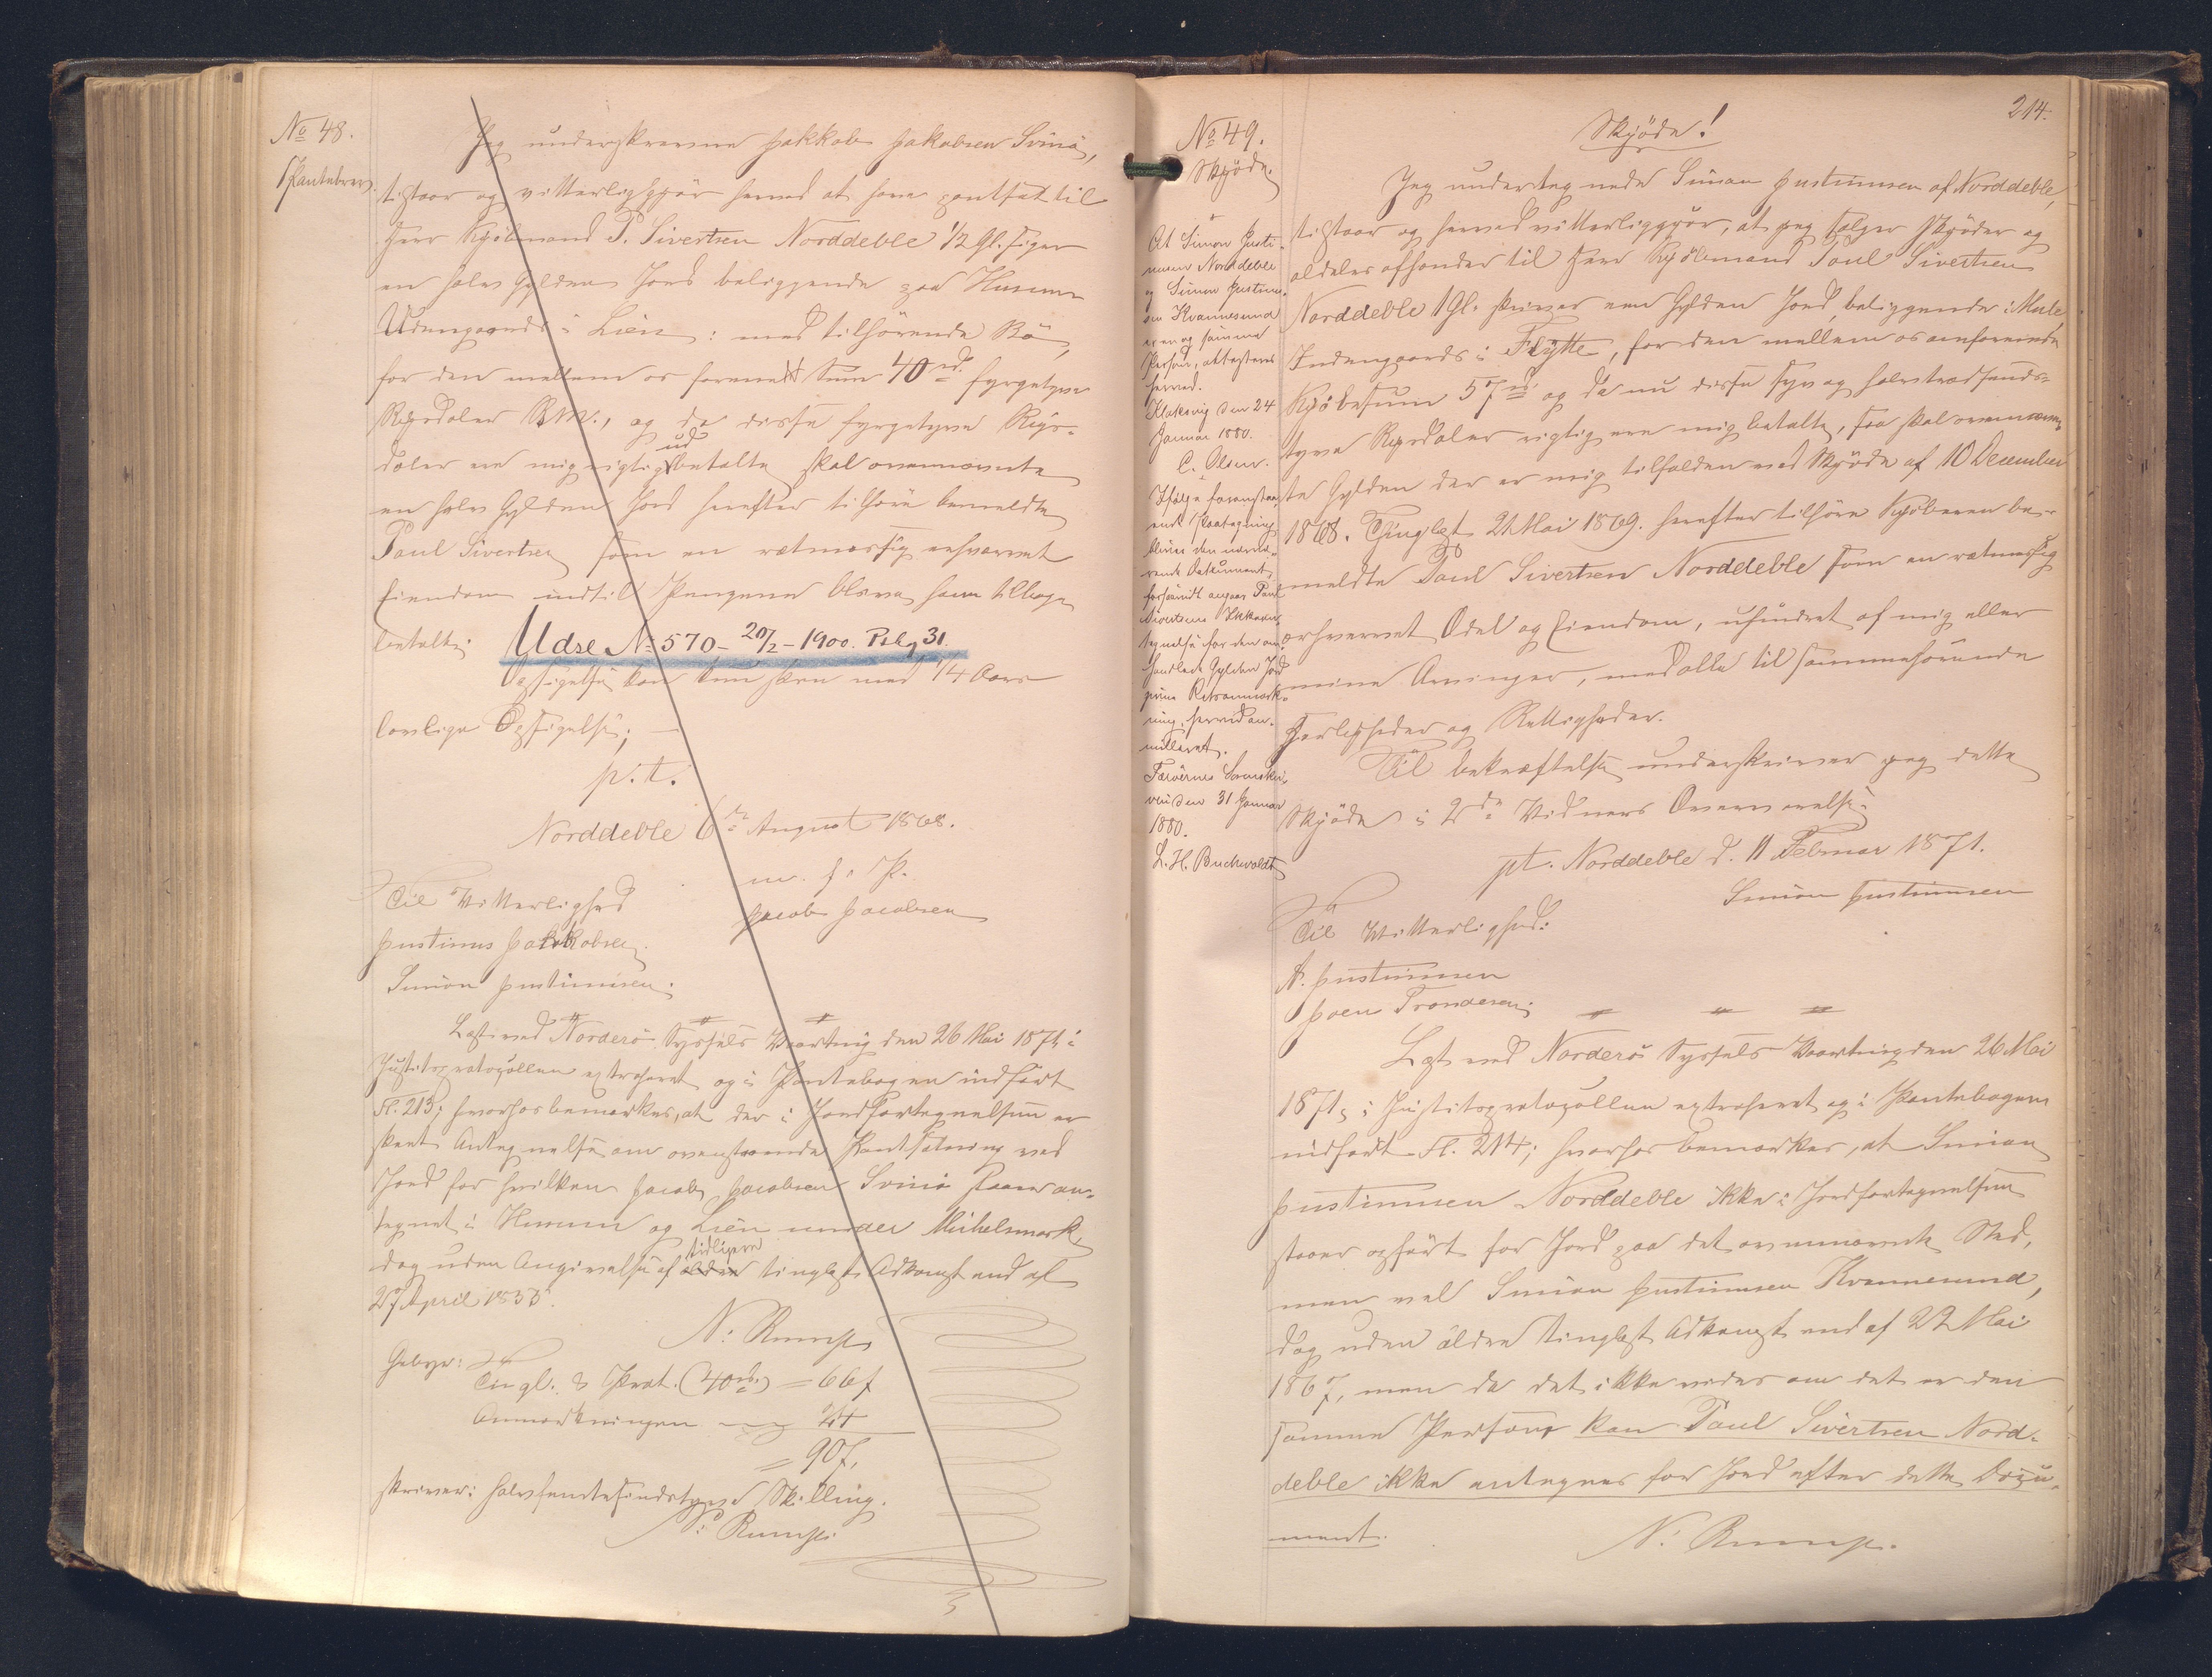 No 48.
Pantebrev.
Jeg underskrevne Jakkob Jakobsen Svinö,
tilstaar og vitterliggjör herved at have pantsat til
Herr Kjöbmand P. Sivertsen Norddeble 1/2 Gl. siger
en halv Gylden Jord beliggende paa Husum
Udengaards i Lien: med tilhörende Bö,
for den mellem os forenet Sum 40 rd. fyrgetyve
Rigsdaler R.M., og da disse fyrgetyve Rigs-
daler ere mig rigtig udbetalte skal ovennævnte
en halv Gylden Jord herefter tilhöre bemeldte
Paul Sivertsen som en retmæssig erhvervet
Eiendom indtil Pengene bleve ham tilbage
betalte;
Udsl No 570 - 20/2 - 1900. Pslg 31.
Opsigelse kan kun skee med 1/4 Aars
lovlige Opsigelse; —
p. t.
Norddeble 6te August 1868.
m. f. P.
Til Vitterlighed
Jacob Jacobsen
Justinus Jakkobsen.
Simon Justinussen.
Læst ved Norderö Syssels Vaarting den 26 Mai 1871, i
Justitsprotocollen extraheret og i Pantebogen indfört
Fl. 213; hvorhos bemærkes, at der i Jordfortegnelsen er
skeet Antegnelse om ovenstaaende Pantsætning ved
Jord for hvilken Jacob Jacobsen Svinö staaer an-
tegnet i Husum og Lien under Mikkelsmark,
dog uden Angivelse af tidligere tinglæst Adkomst end af
27 April 1835.
N: Rump
Gebyr:
Tingl. & Prot. (40 rd.) = 66 f
Anmærkningen 24
= 90 f.
skriver: halvfemtesindstyve Skilling.
N: Rump.
214.
No 49.
Skjöde.
At Simon Justi-
nussen Norddeble
og Simon Justinus-
sen Kvannesund
er en og samme
Person, attesteres
herved.
Klaksvig den 24
Januar 1880.
C. Olsen.
Ifölge foranstaa-
ende Paategning
bliver den nærvæ-
rende Dokument,
forsaavidt angaaer Paul
Sivertsens Ikkean-
tegnelse for den om-
handlede Gylden Jord
givne Retsanmærk-
ning herved an-
nulleret.
Færöernes Sorenskri-
veri den 31 Januar
1880.
L. H. Buchwaldt
Skjöde!
Jeg undertegnede Simon Justinussen af Norddeble,
tilstaar og herved vitterliggjör, at jeg sælger skjöder og
aldeles afhænder til Herr Kjöbmand Poul Sivertsen
Norddeble 1 Gl. skriver een Gylden Jord, beliggende i Mule
Indengaards i Flÿtte, for den mellem os omforenede
Kjöbesum 57 rd og da nu disse syv og halvtredsinds-
tyve Rigsdaler rigtig ere mig betalte, saa skal ovennævn-
te Gylden der er mig tilfalden ved Skjöde af 10 December
1868. Tinglæst 21 Mai 1869. herefter tilhöre Kjöberen be-
meldte Poul Sivertsen Norddeble som en retmæssig
erhvervet Odel og Eiendom, uhindret af mig eller
mine Arvinger, med alle til sammehörende
Herligheder og Rettigheder.
Til bekræftelse underskriver jeg dette
Skjöde i 2de Vidners Overværelse.
pt. Norddeble d. 11 Februar 1871.
Simon Justinussen
Til Vitterlighed:
A. Justinussen
Joen Trondesen.
Læst ved Norderö Syssels Vaarting den 26 Mai
1871, i Justitsprotocollen extraheret og i Pantebogen
indfört Fl. 214; hvorhos bemærkes, at Simon
Justinussen Norddeble ikke i Jordfortegnelsen
staaer opfört for Jord paa det ovennævnte Sted,
men vel Simon Justinussen Kvannesund,
dog uden ældre tinglæst Adkomst end af 22 Mai
1867, men da det ikke vides om det er den
samme Person, kan Paul Sivertsen Nord-
deble ikke antegnes for Jord efter dette Docu-
ment.
N. Rump.